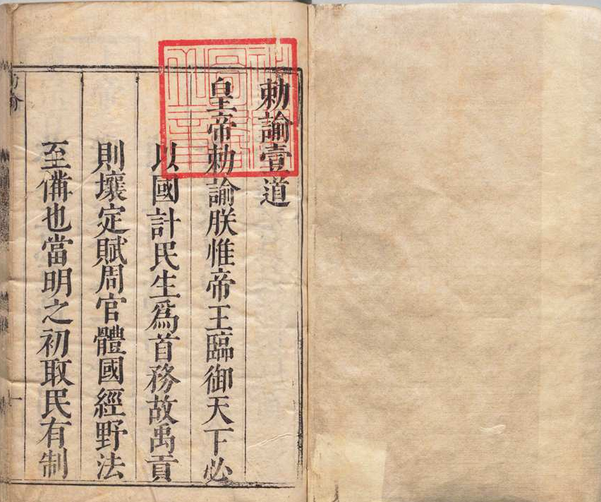 勅諭壹道
皇帝勅諭朕惟帝王臨御天下必
以國計民生爲首務故禹貢
則壤定賦周官體國經野法
至備也當明之初取民有制